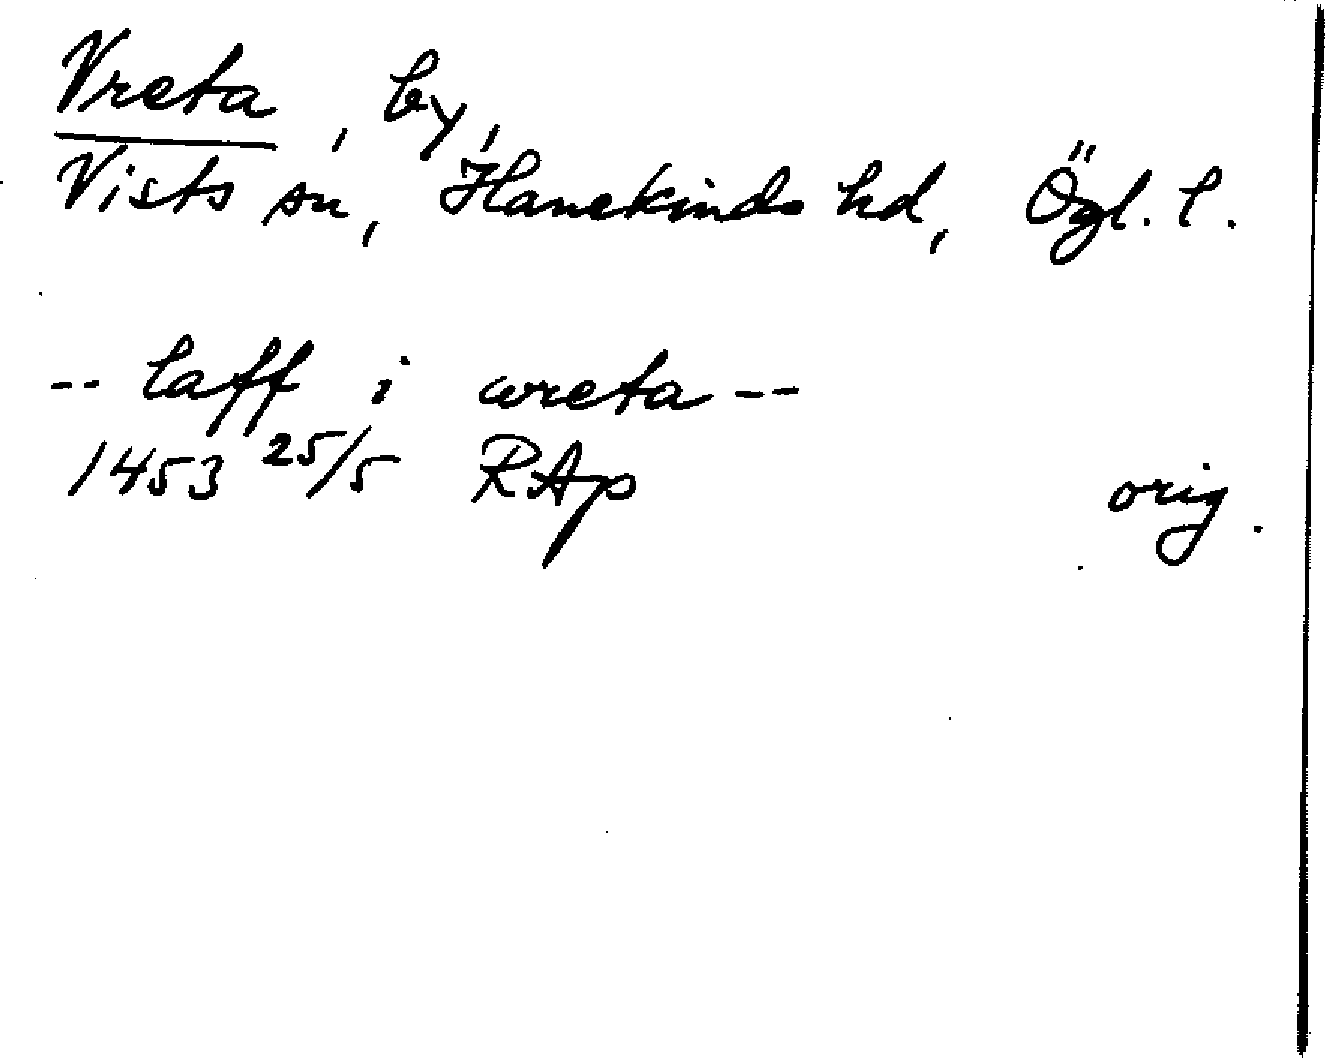 Vreta, by,
Vists sn, Hanekinds hd, Ögl. l.
-- laff i wreta --
1453 25/5 RAp orig.